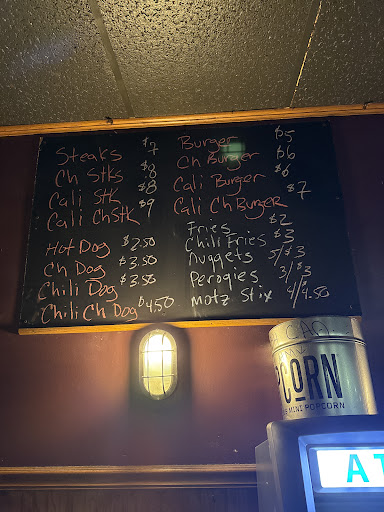 Steaks $7
Ch Stks $8
Cali Stk $8
Cali ChStk $9
Hot Dog $2.50
Ch Dog $3.50
Chili Dog $3.50
Chili Ch Dog $4.50
Burger $5
Ch Burger $6
Cali Burger $6
Cali Ch Burger $7
Fries $2
Chili Fries $3
Nuggets 5/$3
Perogies 3/$3
Motz Stix 4/4.50
CAN
CORN
MINI POPCORN
AT